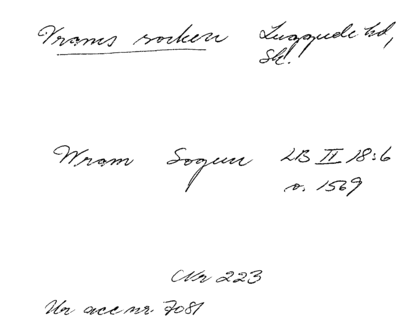 Vrams socken Luggude hd,
Sk.
Wram Sogen LB II 18:6
o. 1569
Nr 223
Ur acc nr. 7081